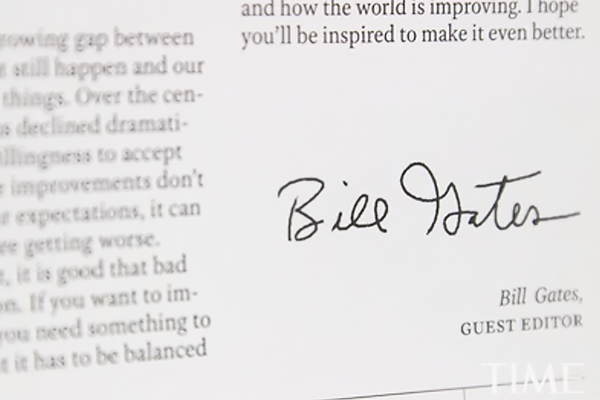 growing gap between
still happen and our
things. Over the cen-
declined dramati-
willingness to accept
improvements don't
expectations, it can
getting worse.
it is good that bad
on. If you want to im-
you need something to
it has to be balanced
and how the world is improving. I hope
you'll be inspired to make it even better.
Bill Gates
Bill Gates,
GUEST EDITOR
TIME